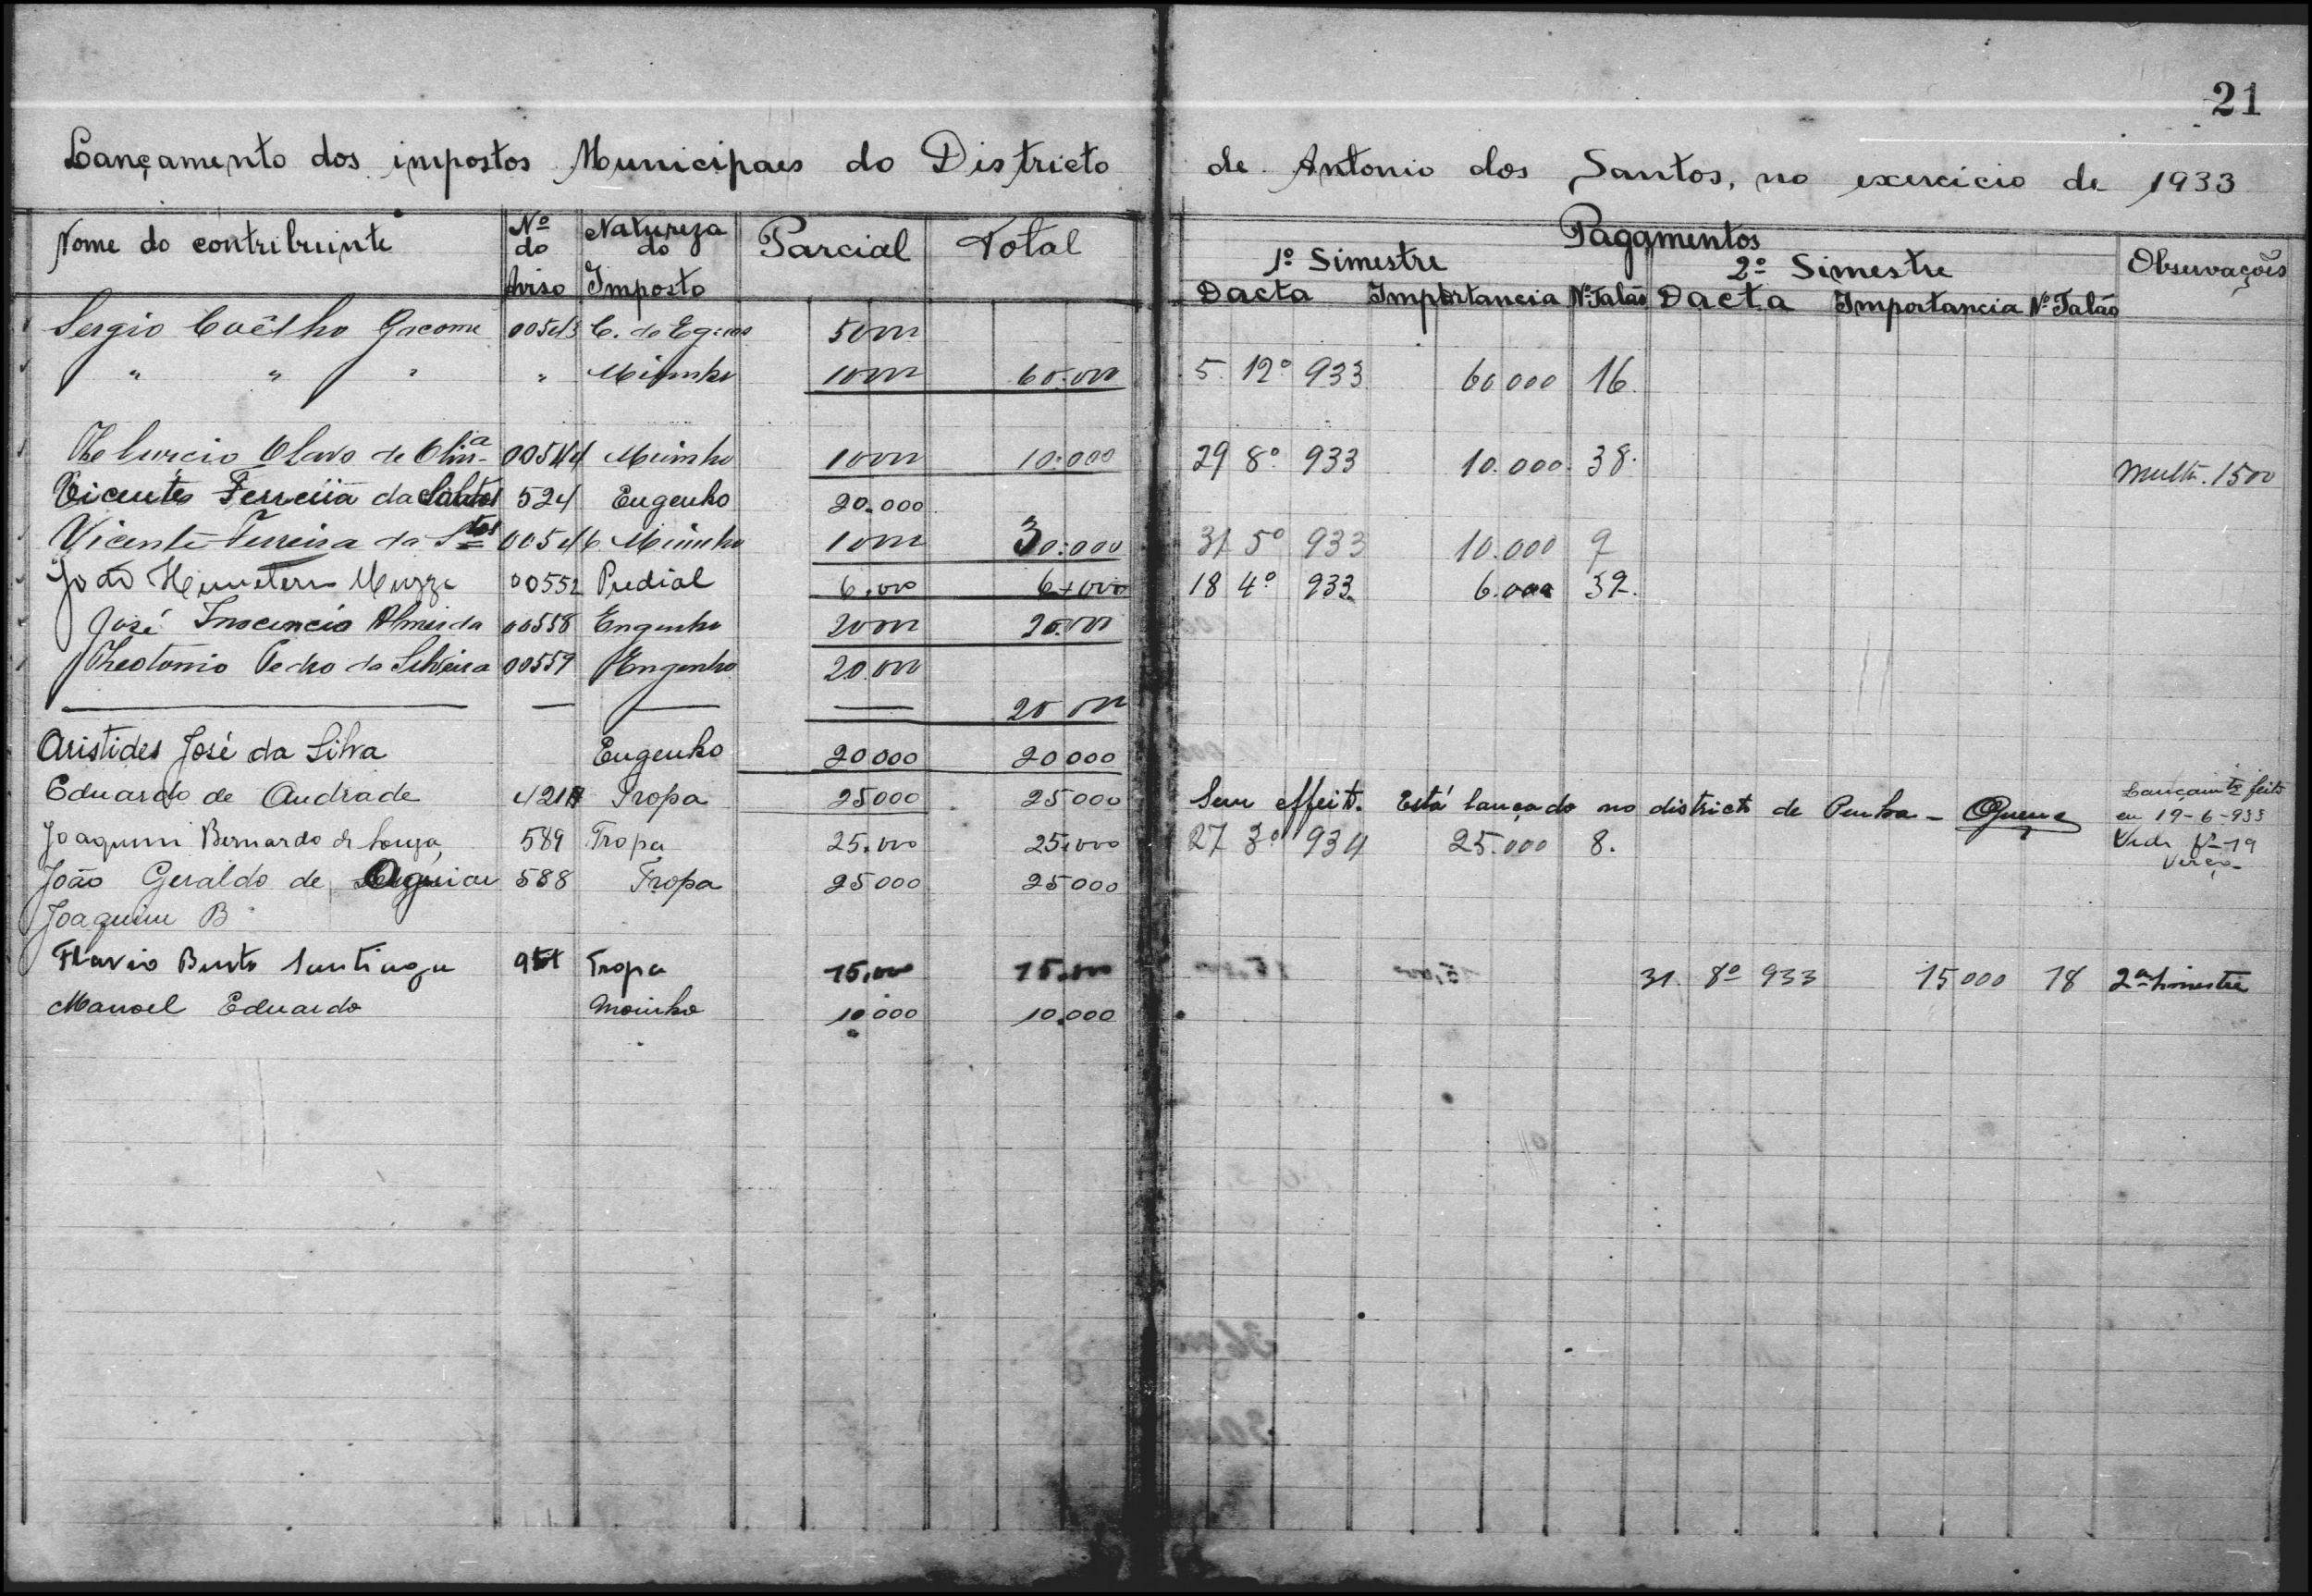 21
Lançamento dos impostos Municipaes do Districto de Antonio dos Santos, no exercicio de 1933
Nome do contribuinte Nº do Aviso Natureza do Imposto Parcial Total Pagamentos Observações
1º Simestre 2º Simestre
Dacta Importancia Nº Talão Dacta Importancia Nº Talão
Sergio Coêlho Jacome 00543 C. de 50000
" " " " Moinho 10000 60.000 5 12º 933 60 000 16
Olavo de Olivª 00544 Moinho 10000 10:000 29 8º 933 10.000 38. Multa. 1500
Vicente Ferreira da 524 Engenho 20.000
Vicente Ferreira da Stos 00546 Moinho 10000 30:000 31 5º 933 10.000 9
João 00552 Predial 6.000 6.000 18 4º 933 6.000 39.
José Inocencio Almeida 00558 Engenho 20000 20.000
Theotonio Pedro da Silveira 00559 Engenho 20.000
— — — — 20 000
Aristides José da Silva Engenho 20000 20000
Eduardo de Andrade 421 Tropa 25000 25000 Sem effeito. Está lançado no districto de Penha - Lançamto feito
em 19-6-933
Joaquim Bernardo de Souza 589 Tropa 25.000 25.000 27 3º 934 25.000 8. Vide fl-19
Verço-
João Geraldo de Aguiar 588 Tropa 25000 25000
Joaquim B
Flavio Bento Santiago Tropa 15.000 15.000 31 8º 933 15000 18 2º Simestre
Manoel Eduardo Moinho 10.000 10.000